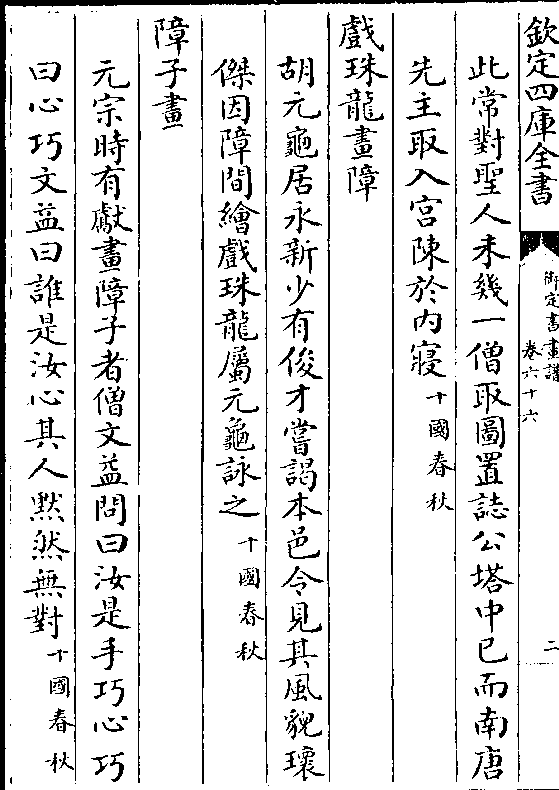 欽定四庫全書
御定書畫譜
卷六十六
二
此常對聖人未幾一僧取圖置誌公塔中已而南唐
先主取入宮陳於内寢十國春秋
戲珠龍畫障
胡元龜居永新少有俊才嘗謁本邑令見其風貌瓌
傑因障間繪戲珠龍屬元龜詠之十國春秋
障子畫
元宗時有獻畫障子者僧文益問曰汝是手巧心巧
曰心巧文益曰誰是汝心其人黙然無對十國春秋